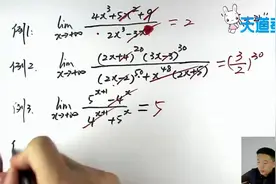 天道
例1: lim x→+∞ (4x³+5x²+9)/(2x³-3x) = 2
例2. lim x→+∞ (2x+4)²⁰(3x-5)³⁰/((2x-2)⁵⁰+x⁴⁸(2x+5)) = (3/2)³⁰
例3. lim x→+∞ (5ˣ⁺¹-4ˣ)/(4ˣ⁺¹+5ˣ) = 5